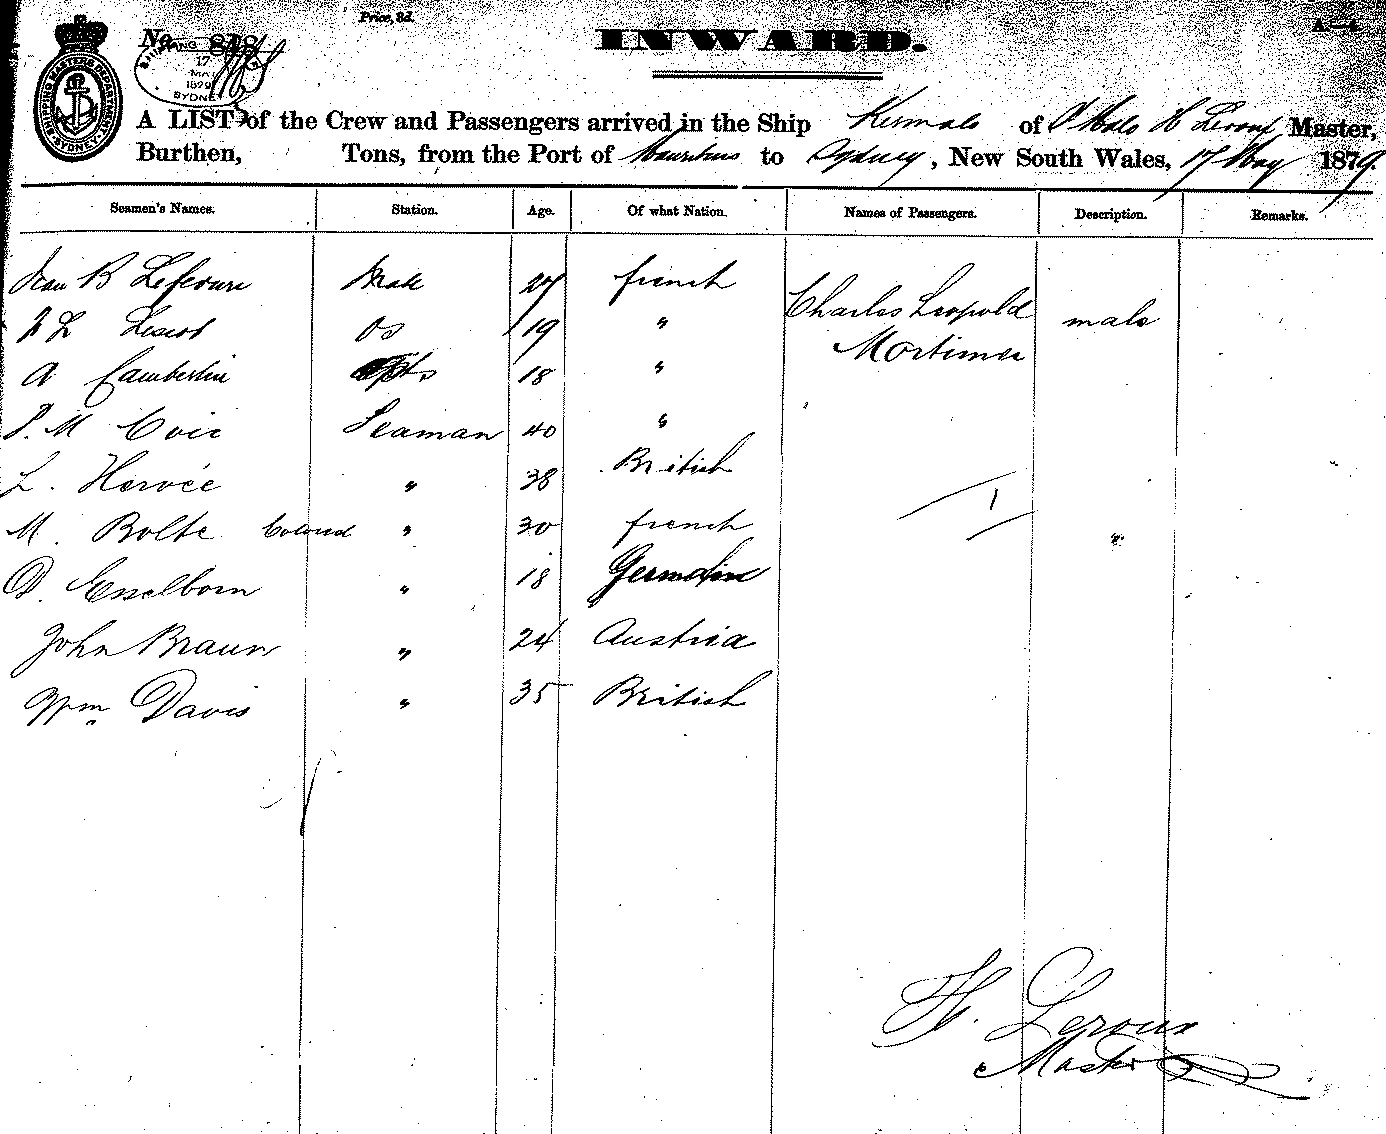 Price, 3d.
No. 848
SHIPPING MASTERS DEPARTMENT SYDNEY
17 MAY 1879
SYDNEY
INWARD.
A LIST of the Crew and Passengers arrived in the Ship Kermalo of H Leroux Master,
Burthen, Tons, from the Port of Mauritius to Sydney, New South Wales, 17 May 1879.
Seamen's Names. Station. Age. Of what Nation. Names of Passengers. Description. Remarks.
Jean B Lefevure Mate 27 french Charles Leopold Mortimer male
Os 19 "
A Camberlin 18 "
P. M Seaman 40 "
L. Hervée " 38 British
M. Bolte Colored " 30 french "
D. Esselborn " 18
John Braun " 24 Austria
Wm Davis " 35 British
1
H. Leroux
Master